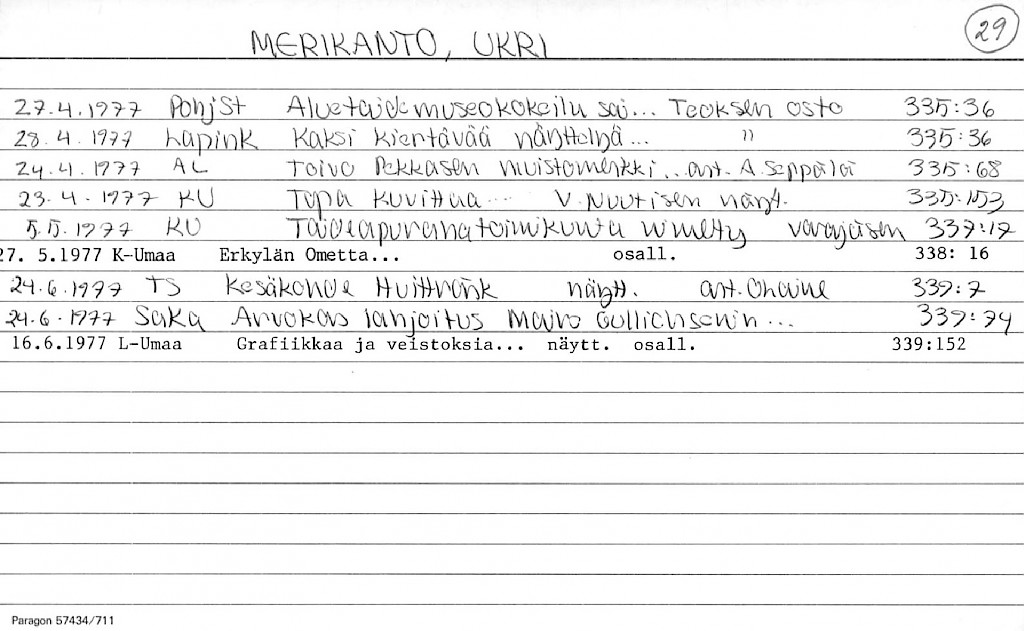 29
MERIKANTO, UKRI
27.4.1977 PohjSt Aluetaidemuseokokeilu sai... Teoksen osto 335:36
28.4.1977 Lapink Kaksi kiertävää näyttelyä... " 335:36
24.4.1977 AL Toivo Pekkasen muistomerkki... art. A.Seppälä 335:68
23.4.1977 KU Tapa kuvittaa... V.Nuutisen näyt. 335:153
5.5.1977 KU Taideapurahatoimikunta nimetty varajäsen 337:17
27. 5.1977 K-Umaa Erkylän Ometta... osall. 338: 16
24.6.1977 TS Kesäkohde Huittvönk näytt. art. 339:7
24.6.1977 SaKa Arvokas lahjoitus Maire Gullichsenin... 339:74
16.6.1977 L-Umaa Grafiikkaa ja veistoksia... näytt. osall. 339:152
Paragon 57434/711